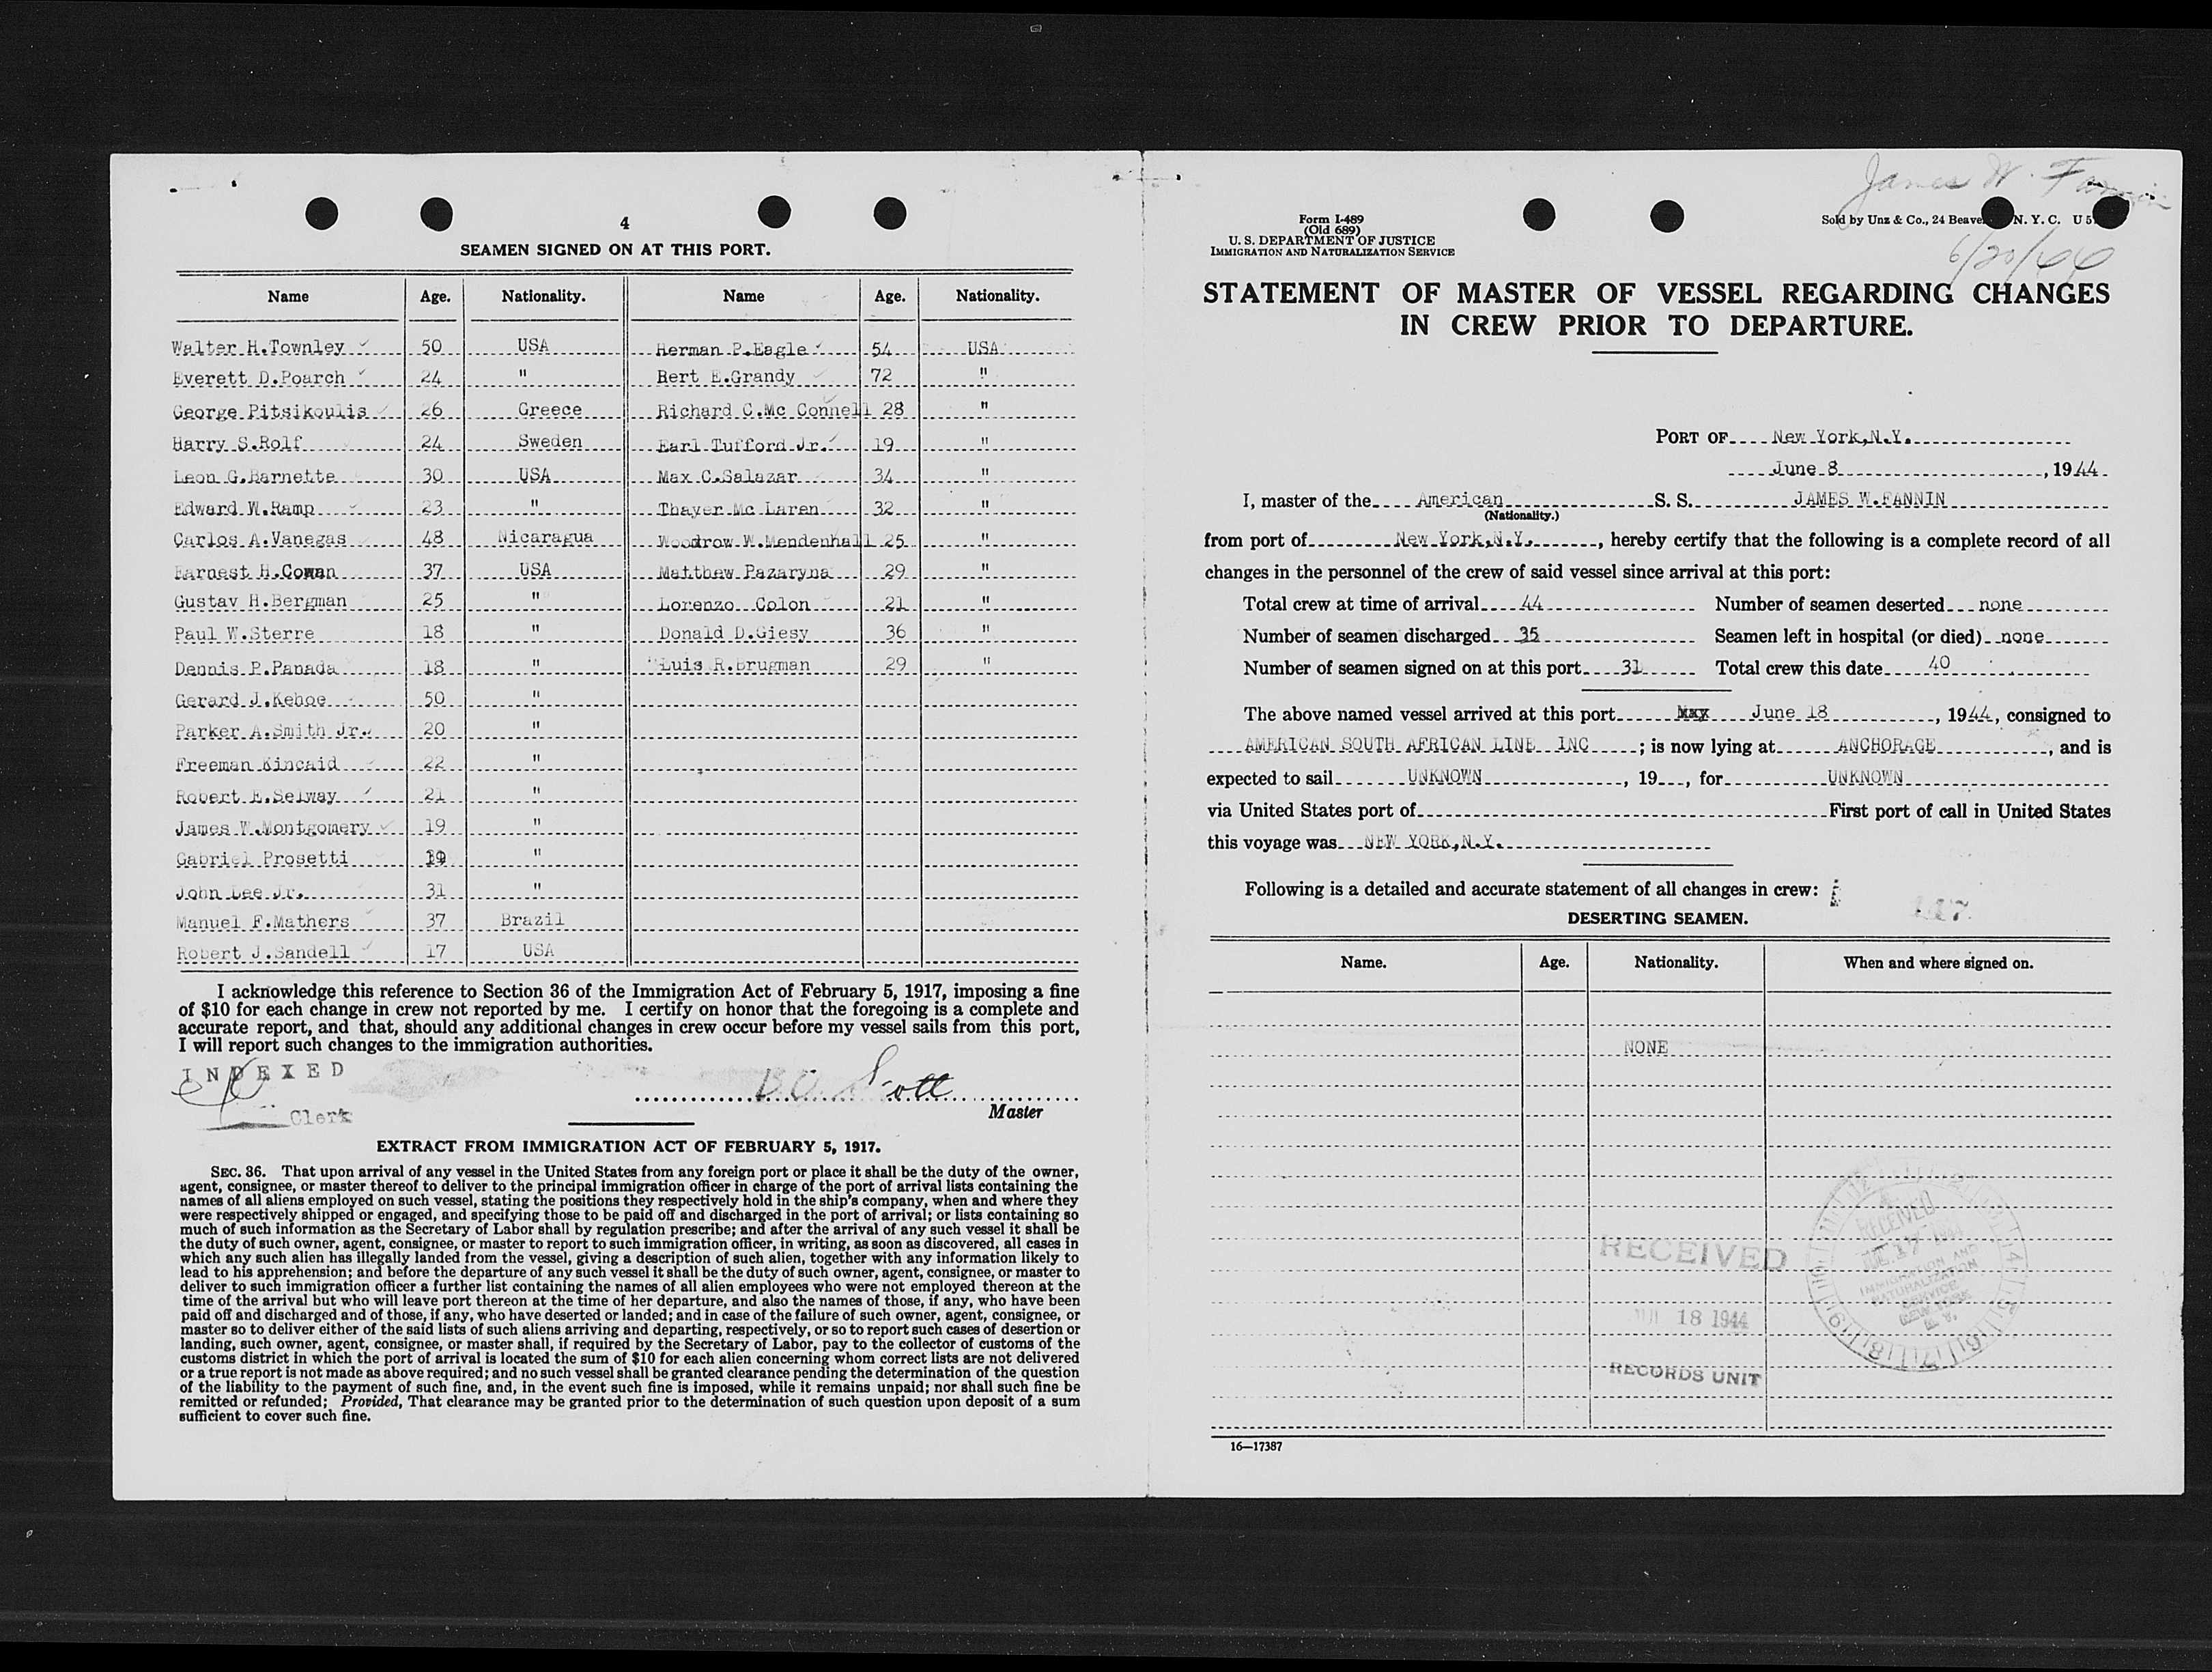 4
SEAMEN SIGNED ON AT THIS PORT.
Name Age. Nationality. Name Age. Nationality.
Walter H.Townley 50 USA Herman P.Eagle 54 USA
Everett D.Poarch 24 " Bert E.Grandy 72 "
George Pitsikoulis 26 Greece Richard C.Mc Connell 28 "
Harry S.Rolf 24 Sweden Earl Tufford Jr. 19 "
Leon G.Barnette 30 USA Max C.Salazar 34 "
Edward W.Ramp 23 " Thayer Mc Laren 32 "
Carlos A.Vanegas 48 Nicaragua Woodrow W.Mendenhall 25 "
Earnest H.Cowan 37 USA Matthew Pazaryna 29 "
Gustav H.Bergman 25 " Lorenzo Colon 21 "
Paul W.Sterre 18 " Donald D.Giesy 36 "
Dennis P.Panada 18 " Luis R.Brugman 29 "
Gerard J.Kehoe 50 "
Parker A.Smith Jr. 20 "
Freeman Kincaid 22 "
Robert E.Selway 21 "
James W.Montgomery 19 "
Gabriel Prosetti "
John Lee Jr. 31 "
Manuel F.Mathers 37 Brazil
Robert J.Sandell 17 USA
I acknowledge this reference to Section 36 of the Immigration Act of February 5, 1917, imposing a fine
of $10 for each change in crew not reported by me. I certify on honor that the foregoing is a complete and
accurate report, and that, should any additional changes in crew occur before my vessel sails from this port,
I will report such changes to the immigration authorities.
INDEXED
Clerk
Scott
Master
EXTRACT FROM IMMIGRATION ACT OF FEBRUARY 5, 1917.
SEC. 36. That upon arrival of any vessel in the United States from any foreign port or place it shall be the duty of the owner,
agent, consignee, or master thereof to deliver to the principal immigration officer in charge of the port of arrival lists containing the
names of all aliens employed on such vessel, stating the positions they respectively hold in the ship's company, when and where they
were respectively shipped or engaged, and specifying those to be paid off and discharged in the port of arrival; or lists containing so
much of such information as the Secretary of Labor shall by regulation prescribe; and after the arrival of any such vessel it shall be
the duty of such owner, agent, consignee, or master to report to such immigration officer, in writing, as soon as discovered, all cases in
which any such alien has illegally landed from the vessel, giving a description of such alien, together with any information likely to
lead to his apprehension; and before the departure of any such vessel it shall be the duty of such owner, agent, consignee, or master to
deliver to such immigration officer a further list containing the names of all alien employees who were not employed thereon at the
time of the arrival but who will leave port thereon at the time of her departure, and also the names of those, if any, who have been
paid off and discharged and of those, if any, who have deserted or landed; and in case of the failure of such owner, agent, consignee, or
master so to deliver either of the said lists of such aliens arriving and departing, respectively, or so to report such cases of desertion or
landing, such owner, agent, consignee, or master shall, if required by the Secretary of Labor, pay to the collector of customs of the
customs district in which the port of arrival is located the sum of $10 for each alien concerning whom correct lists are not delivered
or a true report is not made as above required; and no such vessel shall be granted clearance pending the determination of the question
of the liability to the payment of such fine, and, in the event such fine is imposed, while it remains unpaid; nor shall such fine be
remitted or refunded; Provided, That clearance may be granted prior to the determination of such question upon deposit of a sum
sufficient to cover such fine.
James W. Fannin
Form I-489
(Old 689)
U. S. DEPARTMENT OF JUSTICE
IMMIGRATION AND NATURALIZATION SERVICE
Sold by Unz & Co., 24 Beaver N. Y. C. U 5
6/20/44
STATEMENT OF MASTER OF VESSEL REGARDING CHANGES
IN CREW PRIOR TO DEPARTURE.
PORT OF New York,N.Y.
June 8, 1944
I, master of the American S. S. JAMES W.FANNIN
(Nationality.)
from port of New York,N.Y., hereby certify that the following is a complete record of all
changes in the personnel of the crew of said vessel since arrival at this port:
Total crew at time of arrival 44 Number of seamen deserted none
Number of seamen discharged 35 Seamen left in hospital (or died) none
Number of seamen signed on at this port 31 Total crew this date 40
The above named vessel arrived at this port June 18, 1944, consigned to
AMERICAN SOUTH AFRICAN LINE INC; is now lying at ANCHORAGE, and is
expected to sail UNKNOWN, 19__, for UNKNOWN
via United States port of First port of call in United States
this voyage was NEW YORK,N.Y.
Following is a detailed and accurate statement of all changes in crew:
117
DESERTING SEAMEN.
Name. Age. Nationality. When and where signed on.
NONE
RECEIVED
18 1944
RECORDS UNIT
RECEIVED
17 1944
IMMIGRATION AND
NATURALIZATION
SERVICE
NEW YORK
N. Y.
16—17387